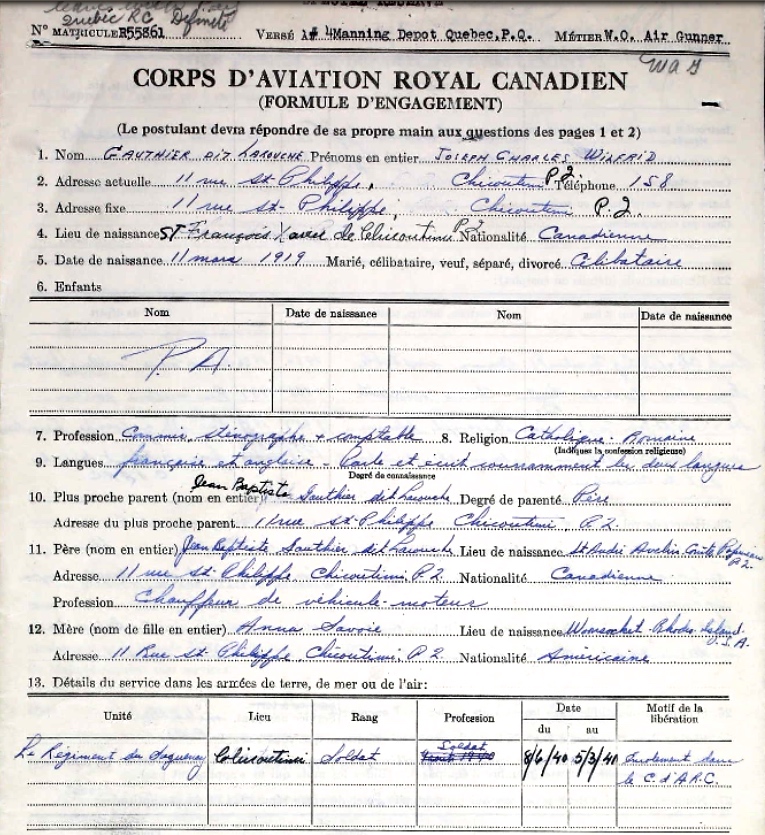 Quebec RC Definite
Nº MATRICULE R55861 VERSÉ À # 4 Manning Depot Quebec, P.Q. MÉTIER W.O. Air Gunner
WAG
CORPS D'AVIATION ROYAL CANADIEN
(FORMULE D'ENGAGEMENT)
(Le postulant devra répondre de sa propre main aux questions des pages 1 et 2)
1. Nom GAUTHIER DIT LAROUCHE Prénoms en entier JOSEPH CHARLES WILFRID
2. Adresse actuelle 11 rue St-Philippe, Chicoutimi P.Q. Téléphone 158
3. Adresse fixe 11 rue St-Philippe, Chicoutimi P.Q.
4. Lieu de naissance ST François Xavier de Chicoutimi P.Q. Nationalité Canadienne
5. Date de naissance 11 mars 1919 Marié, célibataire, veuf, séparé, divorcé Célibataire
6. Enfants
Nom Date de naissance Nom Date de naissance
P.A.
7. Profession Commis, sténographe + comptable 8. Religion Catholique-Romaine
(Indiquez la confession religieuse)
9. Langues française et anglaise - Parle et écrit couramment les deux langues
Degré de connaissance
10. Plus proche parent (nom en entier) Jean Baptiste Gauthier dit Larouche Degré de parenté Père
Adresse du plus proche parent 11 rue St-Philippe Chicoutimi, P.Q.
11. Père (nom en entier) Jean Baptiste Gauthier dit Larouche Lieu de naissance St André Avelin Comté Papineau P.Q.
Adresse 11 rue St-Philippe Chicoutimi, P.Q. Nationalité Canadienne
Profession Chauffeur de véhicule-moteur
12. Mère (nom de fille en entier) Anna Savoie Lieu de naissance Woonsocket Rhode-Island U.S.A.
Adresse 11 Rue St-Philippe, Chicoutimi, P.Q. Nationalité Américaine
13. Détails du service dans les armées de terre, de mer ou de l'air:
Unité Lieu Rang Profession Date Motif de la libération
du au
Le Régiment du Saguenay Chicoutimi Soldat Soldat 8/6/40 5/3/41 Enrôlement dans
le C. d'A.R.C.